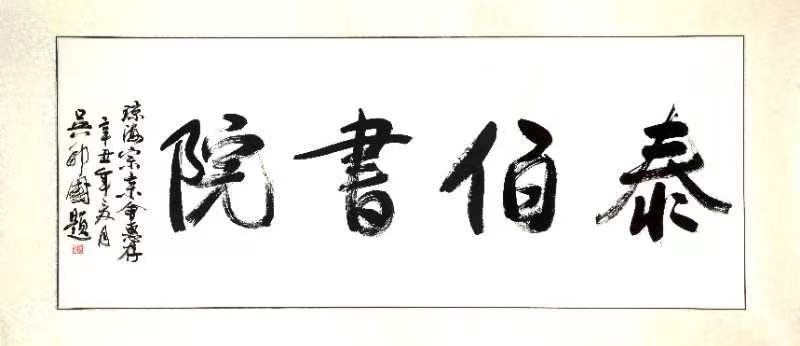 泰伯書院
琼海宗亲會惠存
辛丑年夏月
吴邦國題